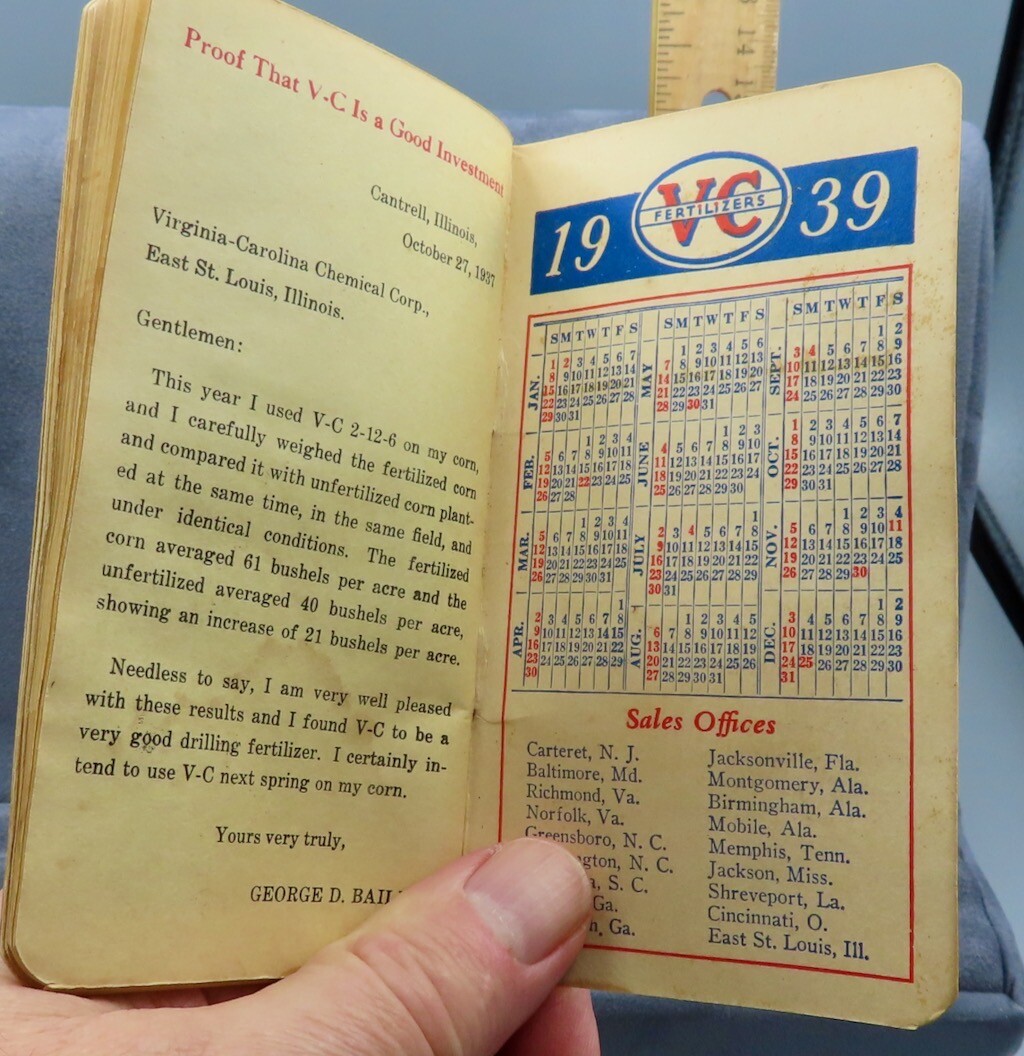 Proof That V-C Is a Good Investment
Cantrell, Illinois,
October 27, 1937
Virginia-Carolina Chemical Corp.,
East St. Louis, Illinois.
Gentlemen:
This year I used V-C 2-12-6 on my corn,
and I carefully weighed the fertilized corn
and compared it with unfertilized corn plant-
ed at the same time, in the same field, and
under identical conditions. The fertilized
corn averaged 61 bushels per acre and the
unfertilized averaged 40 bushels per acre,
showing an increase of 21 bushels per acre.
Needless to say, I am very well pleased
with these results and I found V-C to be a
very good drilling fertilizer. I certainly in-
tend to use V-C next spring on my corn.
Yours very truly,
GEORGE D.
14
19 VC FERTILIZERS 39
S M T W T F S
JAN.
1 2 3 4 5 6 7
8 9 10 11 12 13 14
15 16 17 18 19 20 21
22 23 24 25 26 27 28
29 30 31
FEB.
1 2 3 4
5 6 7 8 9 10 11
12 13 14 15 16 17 18
19 20 21 22 23 24 25
26 27 28
MAR.
1 2 3 4
5 6 7 8 9 10 11
12 13 14 15 16 17 18
19 20 21 22 23 24 25
26 27 28 29 30 31
APR.
1
2 3 4 5 6 7 8
9 10 11 12 13 14 15
16 17 18 19 20 21 22
23 24 25 26 27 28 29
30
S M T W T F S
MAY
1 2 3 4 5 6
7 8 9 10 11 12 13
14 15 16 17 18 19 20
21 22 23 24 25 26 27
28 29 30 31
JUNE
1 2 3
4 5 6 7 8 9 10
11 12 13 14 15 16 17
18 19 20 21 22 23 24
25 26 27 28 29 30
JULY
1
2 3 4 5 6 7 8
9 10 11 12 13 14 15
16 17 18 19 20 21 22
23 24 25 26 27 28 29
30 31
AUG.
1 2 3 4 5
6 7 8 9 10 11 12
13 14 15 16 17 18 19
20 21 22 23 24 25 26
27 28 29 30 31
S M T W T F S
SEPT.
1 2
3 4 5 6 7 8 9
10 11 12 13 14 15 16
17 18 19 20 21 22 23
24 25 26 27 28 29 30
OCT.
1 2 3 4 5 6 7
8 9 10 11 12 13 14
15 16 17 18 19 20 21
22 23 24 25 26 27 28
29 30 31
NOV.
1 2 3 4
5 6 7 8 9 10 11
12 13 14 15 16 17 18
19 20 21 22 23 24 25
26 27 28 29 30
DEC.
1 2
3 4 5 6 7 8 9
10 11 12 13 14 15 16
17 18 19 20 21 22 23
24 25 26 27 28 29 30
31
Sales Offices
Carteret, N. J.
Baltimore, Md.
Richmond, Va.
Norfolk, Va.
Greensboro, N. C.
N. C.
S. C.
Ga.
Ga.
Jacksonville, Fla.
Montgomery, Ala.
Birmingham, Ala.
Mobile, Ala.
Memphis, Tenn.
Jackson, Miss.
Shreveport, La.
Cincinnati, O.
East St. Louis, Ill.